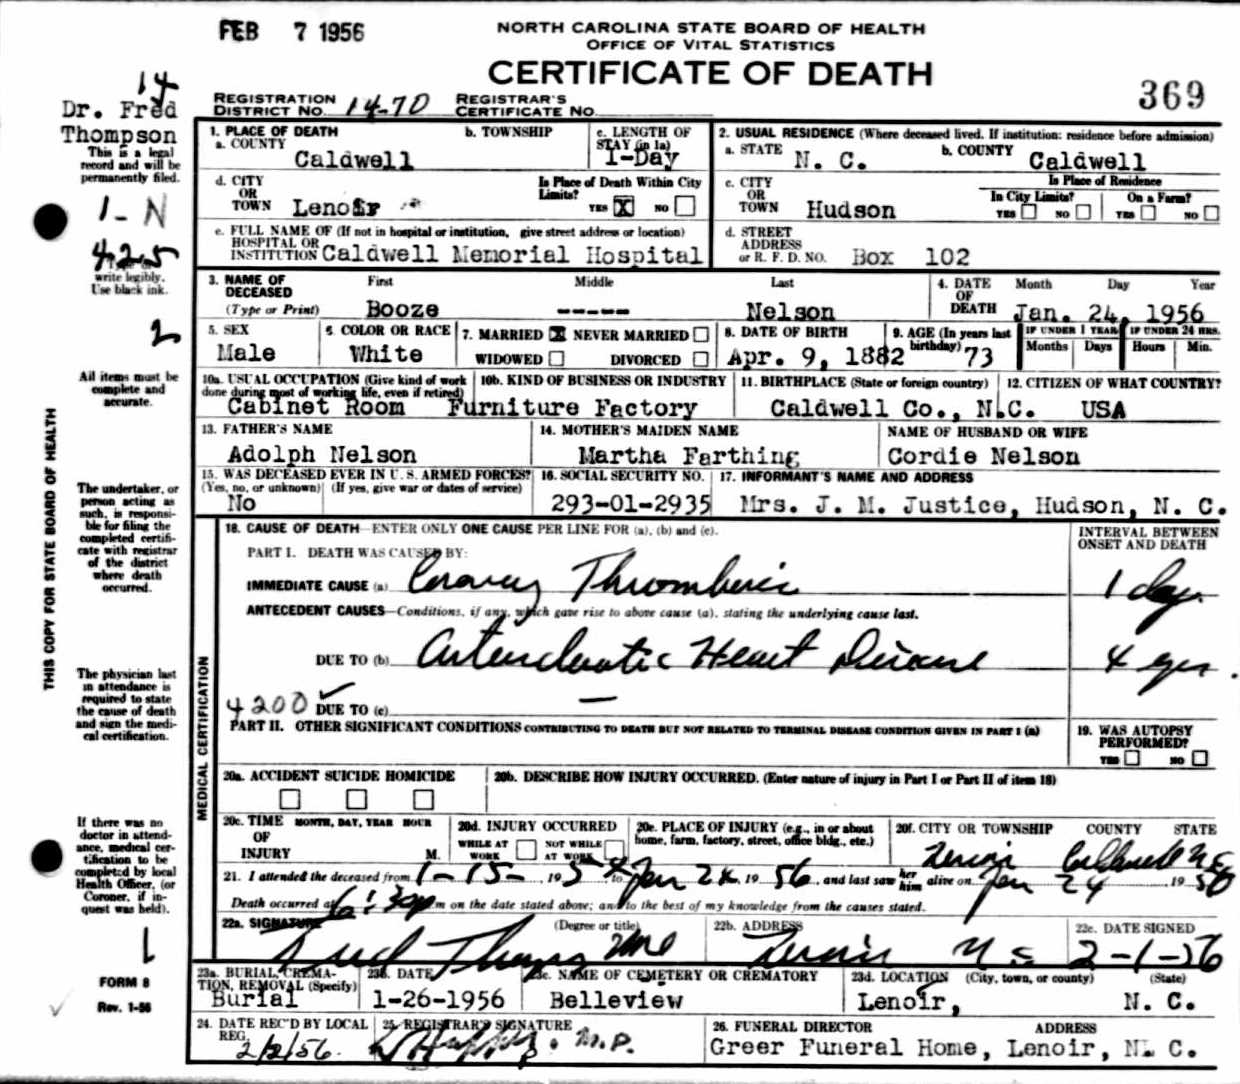 FEB 7 1956
NORTH CAROLINA STATE BOARD OF HEALTH
OFFICE OF VITAL STATISTICS
CERTIFICATE OF DEATH
369
14
Dr. Fred
Thompson
This is a legal
record and will be
permanently filed.
1-N
425
write legibly.
Use black ink.
2
All items must be
complete and
accurate.
The undertaker, or
person acting as
such, is responsi-
ble for filing the
completed certifi-
cate with registrar
of the district
where death
occurred.
The physician last
in attendance is
required to state
the cause of death
and sign the medi-
cal certification.
If there was no
doctor in attend-
ance, medical cer-
tification to be
completed by local
Health Officer, (or
Coroner, if in-
quest was held).
1
FORM 8
Rev. 1-56
THIS COPY FOR STATE BOARD OF HEALTH
REGISTRATION DISTRICT NO. 14-70 REGISTRAR'S CERTIFICATE NO.
1. PLACE OF DEATH
a. COUNTY Caldwell
b. TOWNSHIP
c. LENGTH OF STAY (in 1a) 1-Day
2. USUAL RESIDENCE (Where deceased lived. If institution: residence before admission)
a. STATE N. C. b. COUNTY Caldwell
d. CITY OR TOWN Lenoir
Is Place of Death Within City Limits? YES X NO
c. CITY OR TOWN Hudson
Is Place of Residence
In City Limits? YES NO On a Farm? YES NO
e. FULL NAME OF (If not in hospital or institution, give street address or location)
HOSPITAL OR INSTITUTION Caldwell Memorial Hospital
d. STREET ADDRESS or R. F. D. NO. Box 102
3. NAME OF DECEASED (Type or Print)
First Middle Last
Booze ----- Nelson
4. DATE OF DEATH Month Day Year
Jan. 24, 1956
5. SEX Male
6. COLOR OR RACE White
7. MARRIED X NEVER MARRIED
WIDOWED DIVORCED
8. DATE OF BIRTH Apr. 9, 1882
9. AGE (In years last birthday) 73
IF UNDER 1 YEAR Months Days
IF UNDER 24 HRS. Hours Min.
10a. USUAL OCCUPATION (Give kind of work done during most of working life, even if retired) Cabinet Room
10b. KIND OF BUSINESS OR INDUSTRY Furniture Factory
11. BIRTHPLACE (State or foreign country) Caldwell Co., N.C.
12. CITIZEN OF WHAT COUNTRY? USA
13. FATHER'S NAME Adolph Nelson
14. MOTHER'S MAIDEN NAME Martha Farthing
NAME OF HUSBAND OR WIFE Cordie Nelson
15. WAS DECEASED EVER IN U. S. ARMED FORCES?
(Yes, no, or unknown) (If yes, give war or dates of service)
No
16. SOCIAL SECURITY NO. 293-01-2935
17. INFORMANT'S NAME AND ADDRESS
Mrs. J. M. Justice, Hudson, N. C.
MEDICAL CERTIFICATION
18. CAUSE OF DEATH—ENTER ONLY ONE CAUSE PER LINE FOR (a), (b) and (c).
INTERVAL BETWEEN ONSET AND DEATH
PART I. DEATH WAS CAUSED BY:
IMMEDIATE CAUSE (a) Coronary Thrombosis 1 day
ANTECEDENT CAUSES—Conditions, if any, which gave rise to above cause (a), stating the underlying cause last.
DUE TO (b) Arteriosclerotic Heart Disease 4 yrs
4200 DUE TO (c) —
PART II. OTHER SIGNIFICANT CONDITIONS CONTRIBUTING TO DEATH BUT NOT RELATED TO TERMINAL DISEASE CONDITION GIVEN IN PART I (a)
19. WAS AUTOPSY PERFORMED?
YES NO
20a. ACCIDENT SUICIDE HOMICIDE
20b. DESCRIBE HOW INJURY OCCURRED. (Enter nature of injury in Part I or Part II of item 18)
20c. TIME OF INJURY MONTH, DAY, YEAR HOUR M.
20d. INJURY OCCURRED
WHILE AT WORK NOT WHILE AT WORK
20e. PLACE OF INJURY (e.g., in or about home, farm, factory, street, office bldg., etc.)
20f. CITY OR TOWNSHIP COUNTY STATE
Lenoir Caldwell N C
21. I attended the deceased from 1-15- 195 to Jan 24, 1956, and last saw her him alive on Jan 24 1956
Death occurred at 6:30p m on the date stated above; and to the best of my knowledge from the causes stated.
22a. SIGNATURE (Degree or title)
Fred Thompson MD
22b. ADDRESS
Lenoir N C
22c. DATE SIGNED
2-1-56
23a. BURIAL, CREMATION, REMOVAL (Specify) Burial
23b. DATE 1-26-1956
23c. NAME OF CEMETERY OR CREMATORY Belleview
23d. LOCATION (City, town, or county) (State)
Lenoir, N. C.
24. DATE REC'D BY LOCAL REG. 2/2/56.
25. REGISTRAR'S SIGNATURE M.D.
26. FUNERAL DIRECTOR ADDRESS
Greer Funeral Home, Lenoir, N. C.